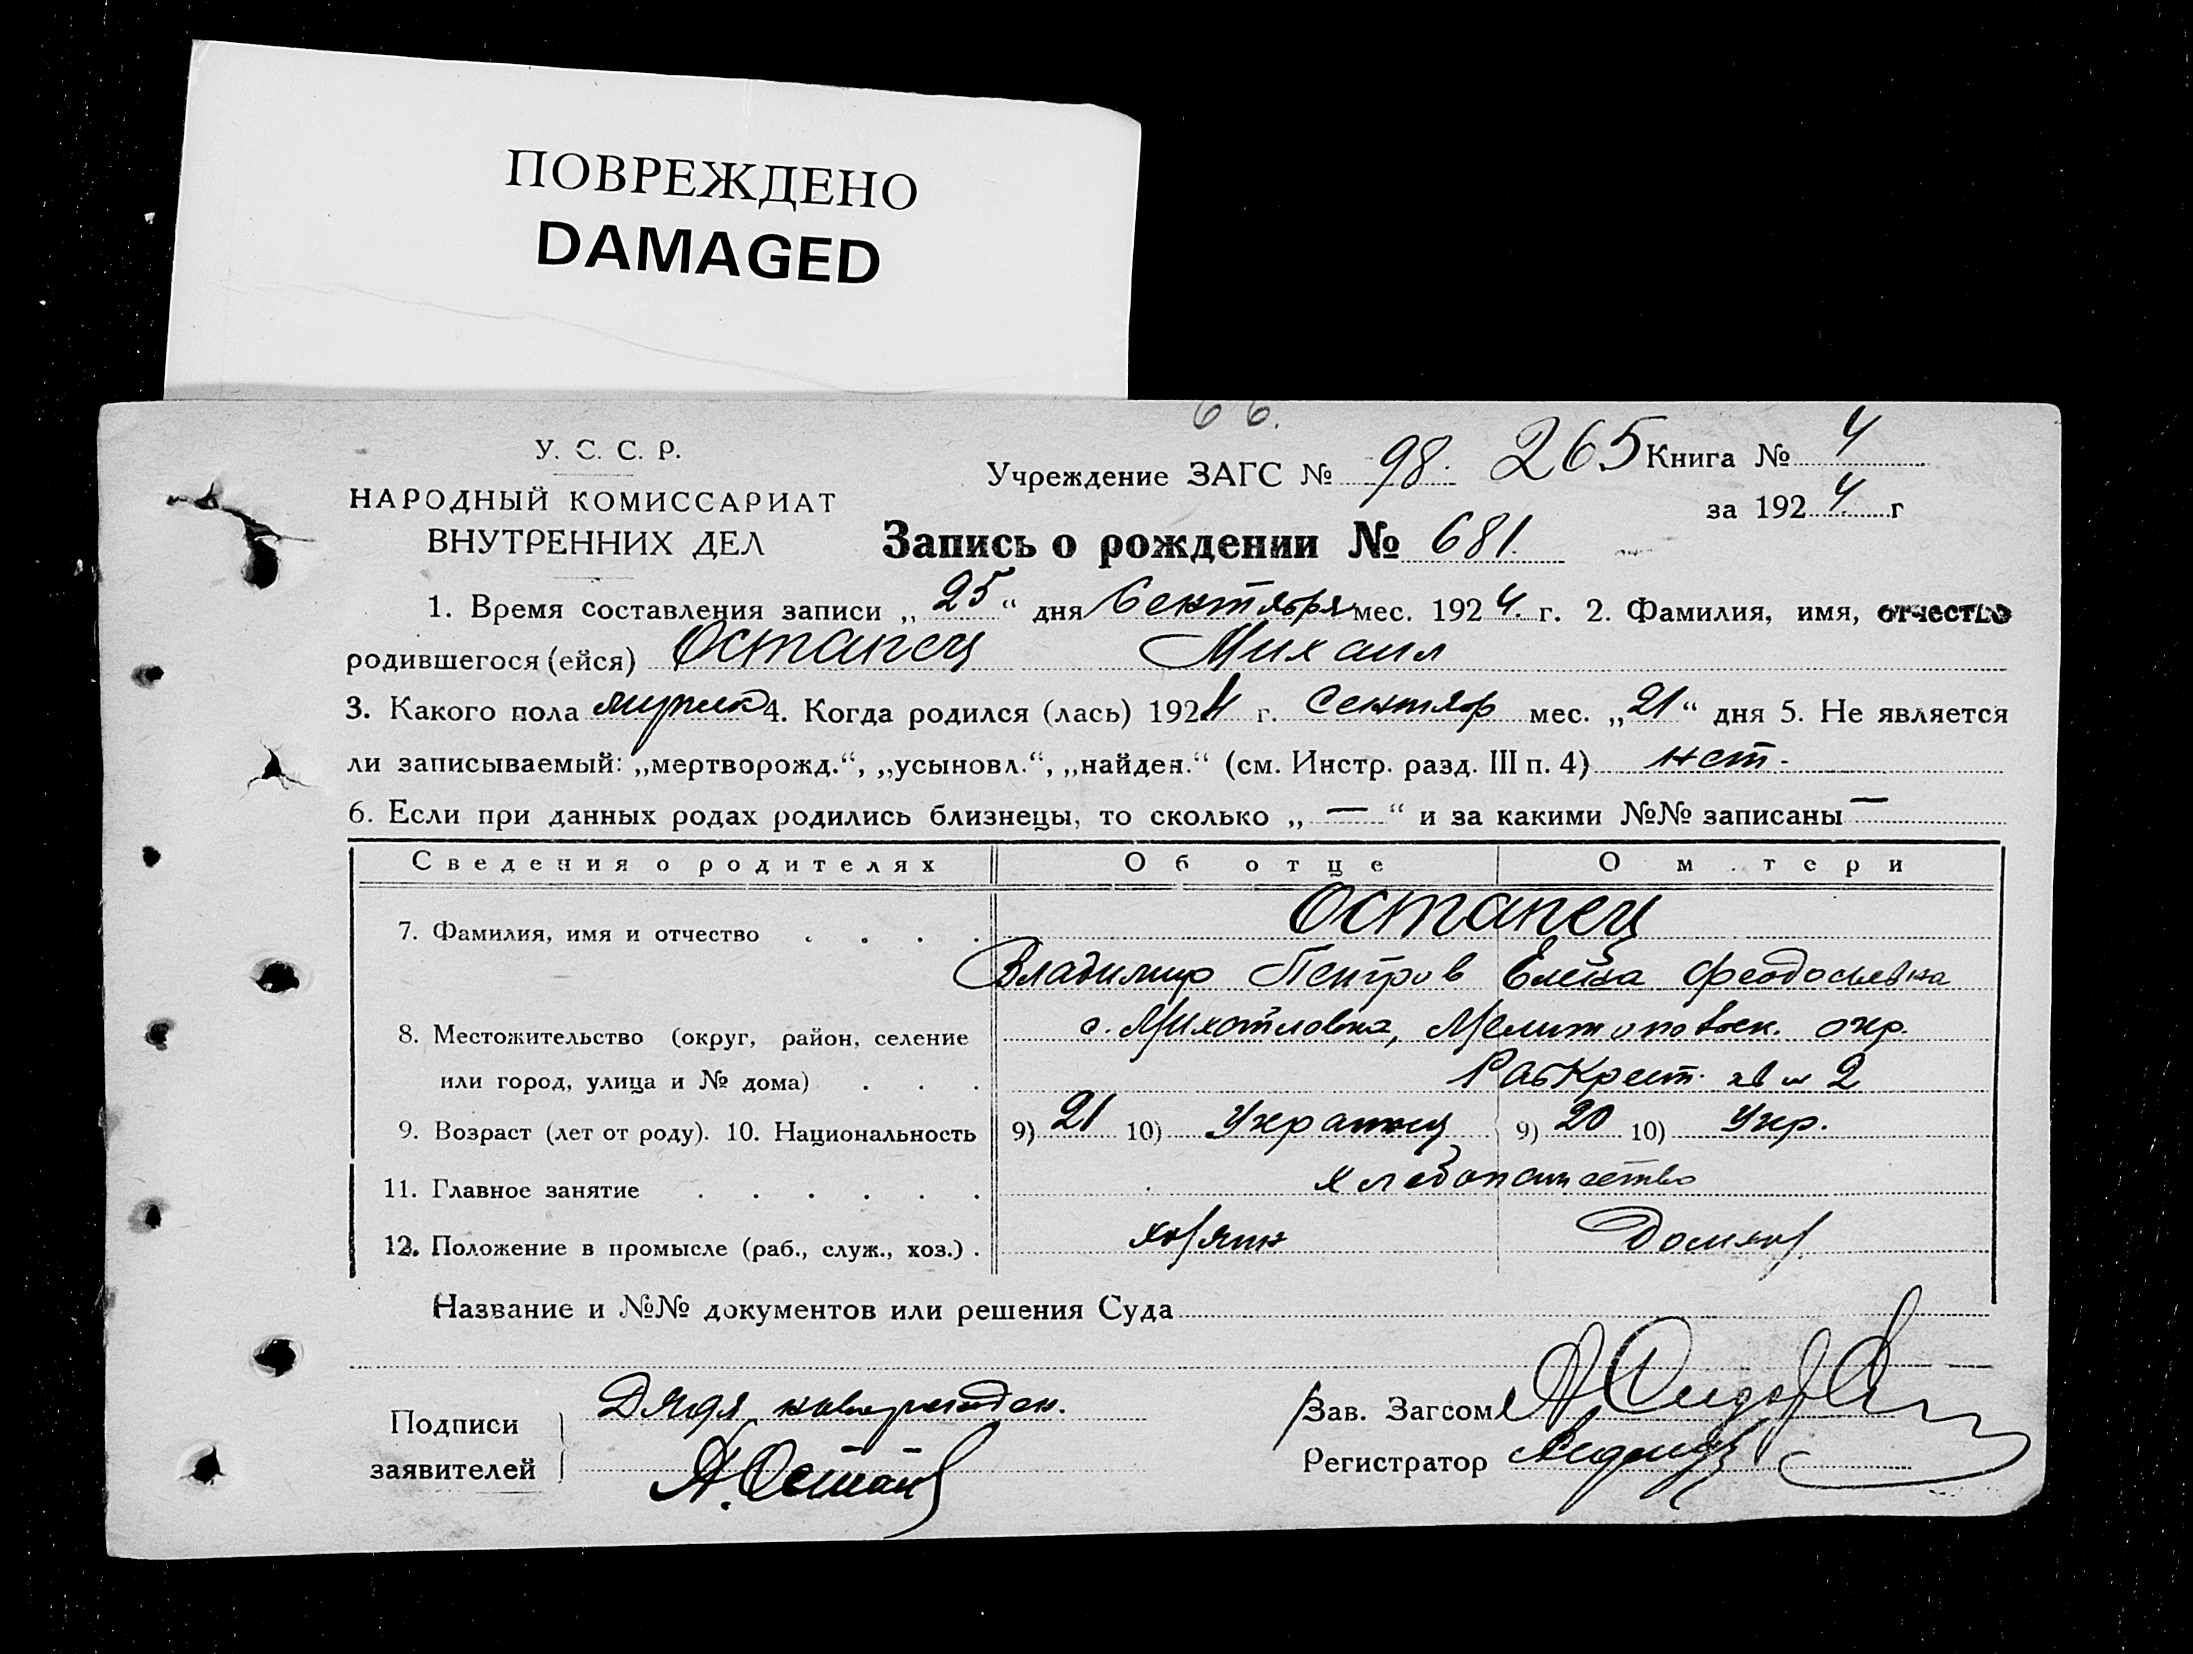 ПОВРЕЖДЕНО
DAMAGED
66.
У. С. С. Р.
НАРОДНЫЙ КОМИССАРИАТ
ВНУТРЕННИХ ДЕЛ
Учреждение ЗАГС № 98. 265 Книга № 4
за 1924 г
Запись о рождении № 681.
1. Время составления записи „25“ дня Сентября мес. 1924. г. 2. Фамилия, имя, отчество
родившегося (ейся) Остапец Михаил
3. Какого пола мужск 4. Когда родился (лась) 1924 г. Сентяб мес. „21“ дня 5. Не является
ли записываемый: „мертворожд.“, „усыновл.“, „найден.“ (см. Инстр. разд. III п. 4) нет.
6. Если при данных родах родились близнецы, то сколько „ — “ и за какими №№ записаны —
Сведения о родителях Об отце О м.тери
7. Фамилия, имя и отчество . . . . Остапец
Владимир Петров Елена Феодосиевна
8. Местожительство (округ, район, селение с. Михайловка, Мелитопольск. окр.
или город, улица и № дома) . . . РабКрест. 2
9. Возраст (лет от роду). 10. Национальность 9) 21 10) Украинец 9) 20 10) Укр.
11. Главное занятие . . . . . . хлебопашество
12. Положение в промысле (раб., служ., хоз.) . хозяин Домхоз.
Название и №№ документов или решения Суда
Подписи Дядя Зав. Загсом
заявителей А. Остапец Регистратор